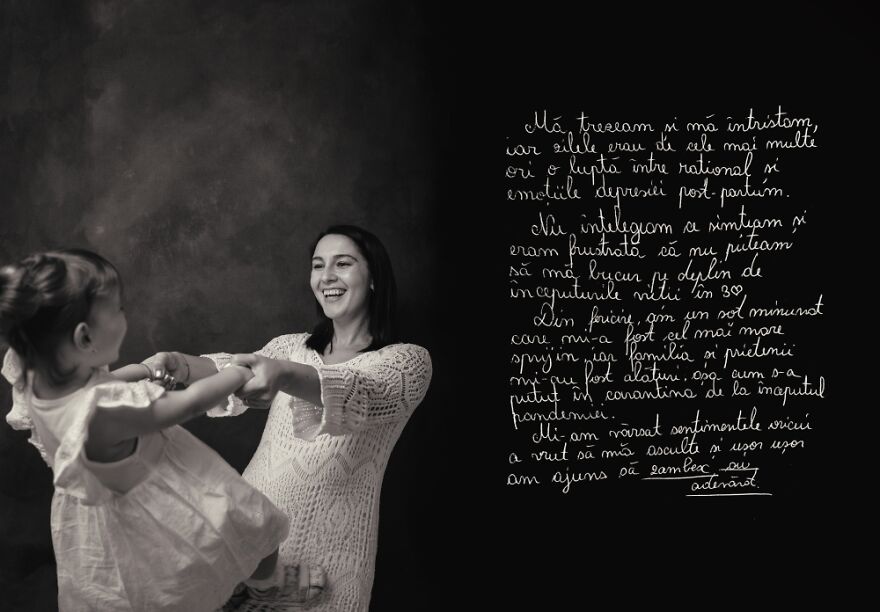 Mă trezeam și mă întristam,
iar zilele erau de cele mai multe
ori o luptă între rațional și
emoțiile depresiei post-partum.
Nu înțelegeam ce simțeam și
eram frustrată că nu puteam
să mă bucur pe deplin de
începuturile vieții în 3♡
Din fericire, am un soț minunat
care mi-a fost cel mai mare
sprijin, iar familia și prietenii
mi-au fost alături, așa cum s-a
putut în carantina de la începutul
pandemiei.
Mi-am vărsat sentimentele oricui
a vrut să mă asculte și ușor ușor
am ajuns să zâmbesc cu
adevărat.